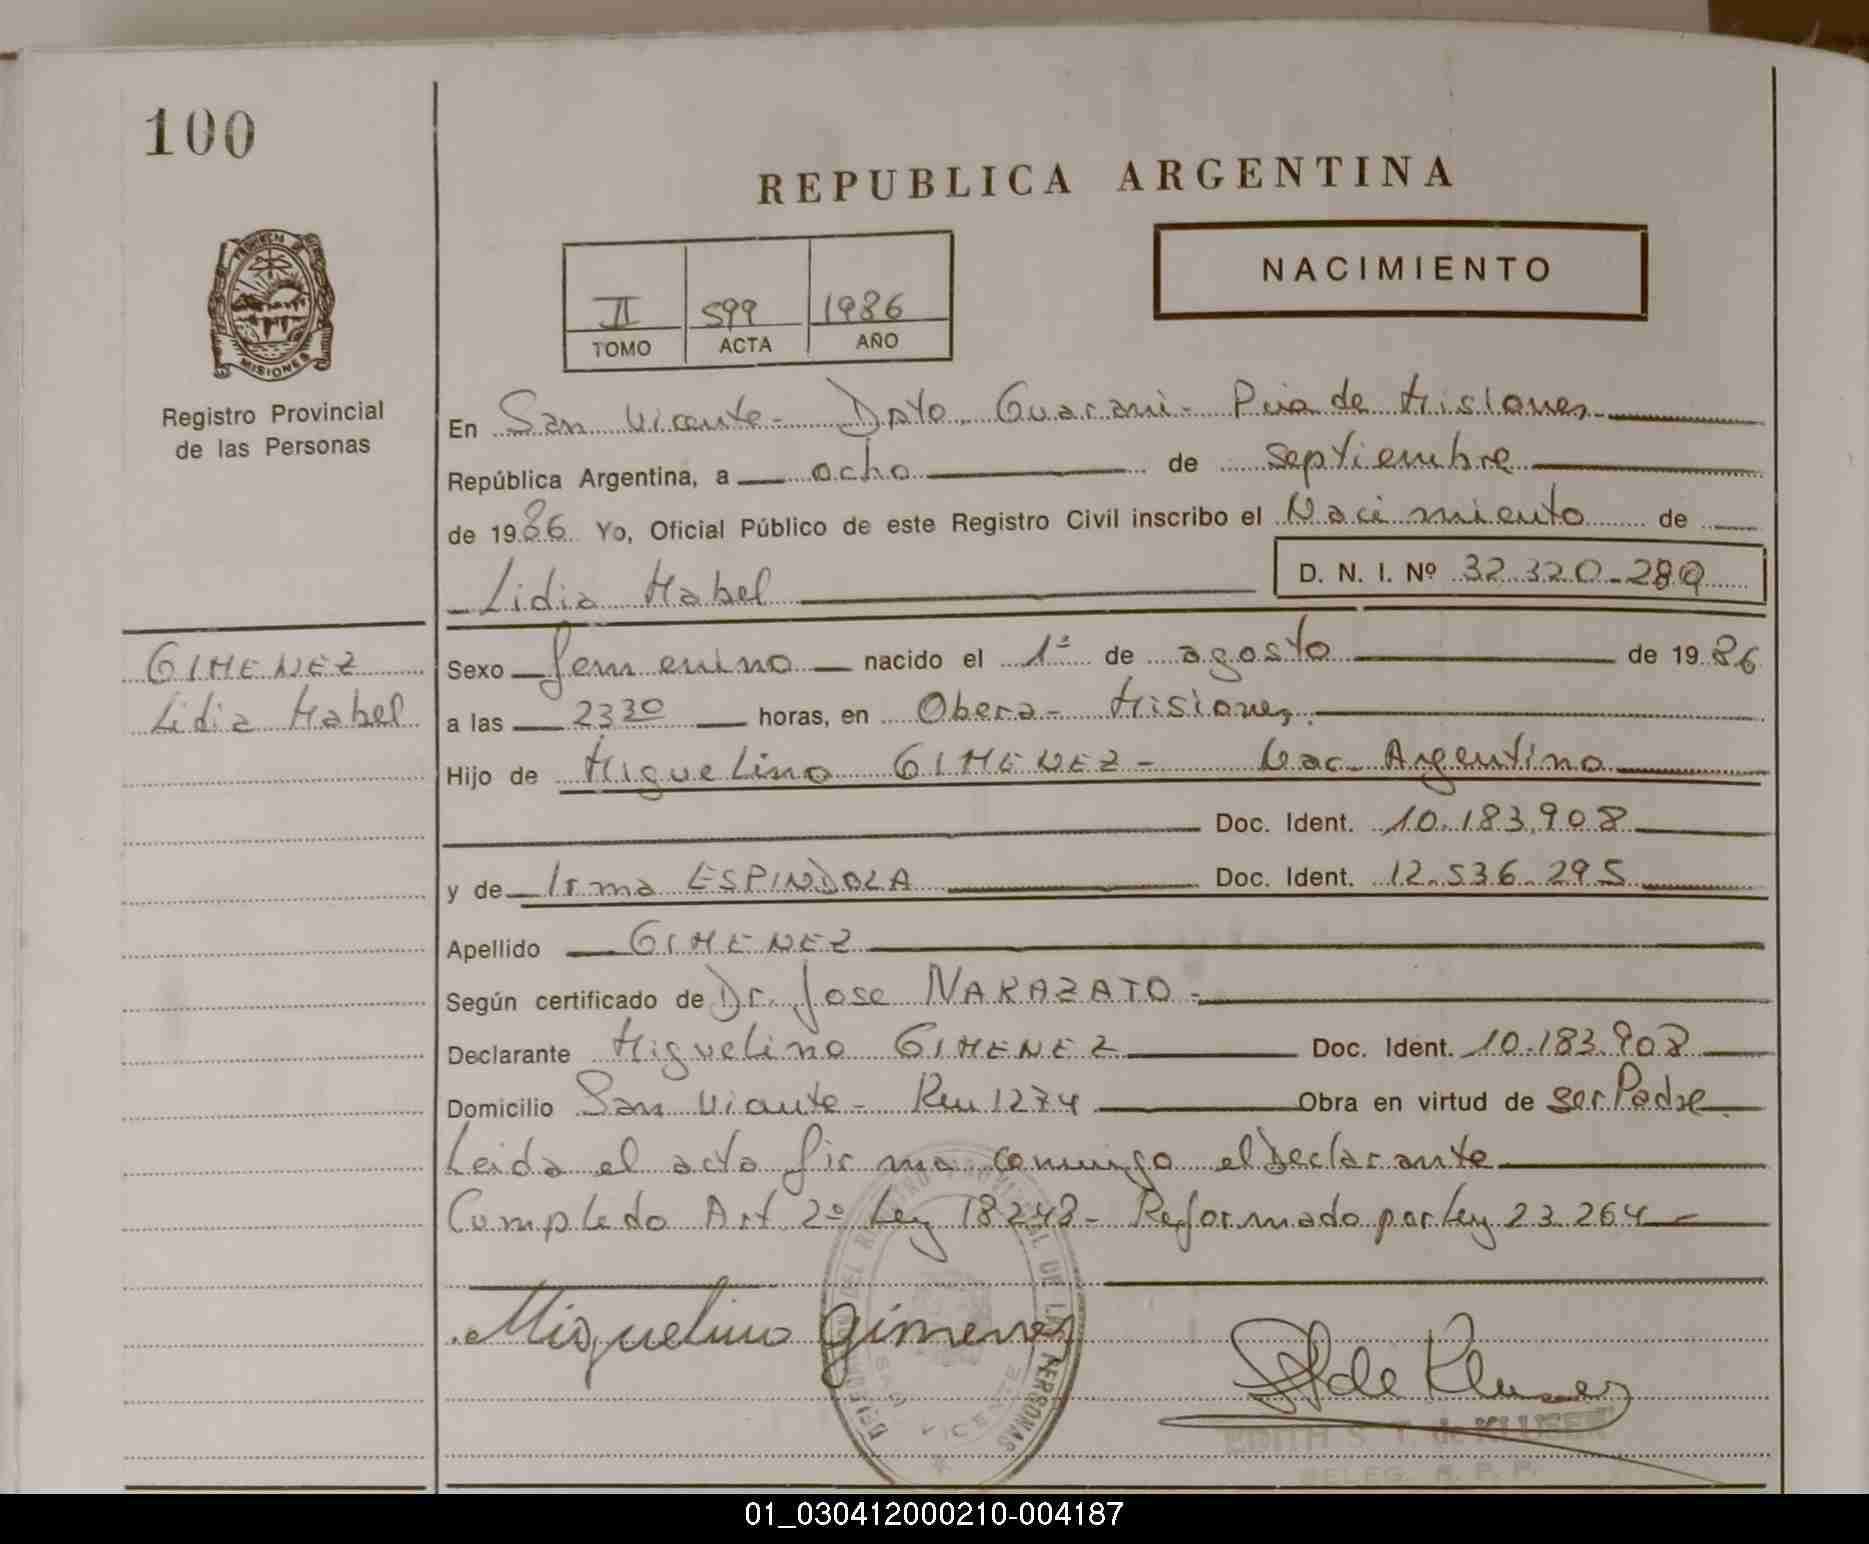 100
REPUBLICA ARGENTINA
NACIMIENTO
PROVINCIA DE
MISIONES
Registro Provincial
de las Personas
II 599 1986
TOMO ACTA AÑO
En San Vicente - Dpto. Guarani - Pcia de Misiones
República Argentina, a ocho de septiembre
de 1986 Yo, Oficial Público de este Registro Civil inscribo el Nacimiento de
Lidia Mabel D. N. I. Nº 32.320.280
GIMENEZ
Lidia Mabel
Sexo femenino nacido el 1º de agosto de 1986
a las 2330 horas, en Obera - Misiones.
Hijo de Miguelino GIMENEZ - Nac. Argentino
Doc. Ident. 10.183.908
y de Irma ESPINDOLA Doc. Ident. 12.536.295
Apellido GIMENEZ
Según certificado de Dr. Jose NAKAZATO -
Declarante Miguelino GIMENEZ Doc. Ident. 10.183.908
Domicilio San Vicente - Km 1274 Obra en virtud de ser Padre
Leida el acta firma conmigo el Declarante
Cumplido Art 2º Ley 18248 - Reformado por Ley 23.264 -
Miguelino Gimenez
DEL REGISTRO PROVINCIAL DE LAS PERSONAS
SAN VICENTE
de Kluser
EDITH S. T. de KLUSER
DELEG. R. P. P.
01_030412000210-004187